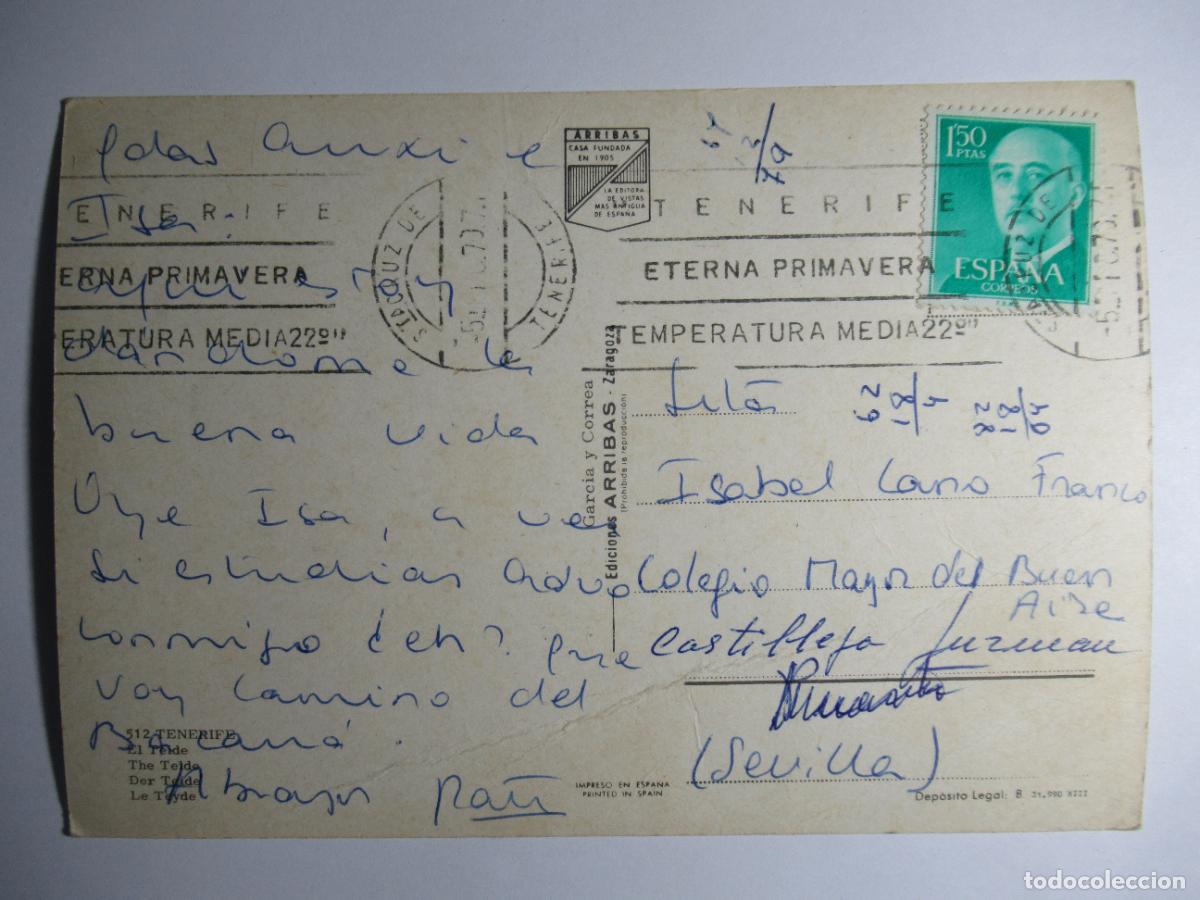 Qdas Auxi e
Isa:
Aquí estoy
dandome la
buena vida
Oye Isa, a ver
si estudias
conmigo ¿eh? que
voy camino del
Abrazos
512 TENERIFE
El Teide
The Teide
Der Teide
Le Teyde
ARRIBAS
CASA FUNDADA
EN 1905
LA EDITORA
DE VISTAS
MAS ANTIGUA
DE ESPAÑA
ENERIFE
ERNA PRIMAVERA
ERATURA MEDIA 22º"
STA CRUZ DE
TENERIFE
TENERIFE
ETERNA PRIMAVERA
TEMPERATURA MEDIA 22º"
1'50
PTAS
ESPAÑA
CORREOS
García y Correa
Ediciones ARRIBAS - Zaragoza
(Prohibida la reproducción)
Srtª
Isabel Cano Franco
Colegio Mayor del Buen
Aire
Castilleja Guzman
(Sevilla)
IMPRESO EN ESPAÑA
PRINTED IN SPAIN
Depósito Legal: B 31.990 XIII
todocoleccion